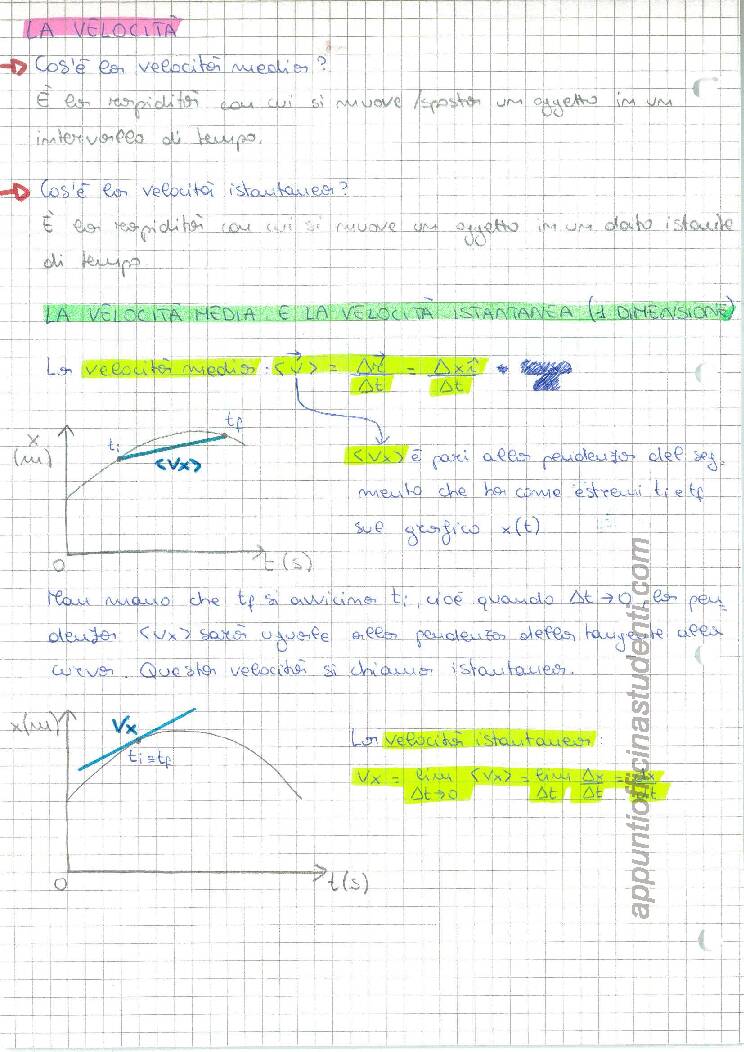 LA VELOCITÀ
Cos'è la velocità media?
È la rapidità con cui si muove/sposta un oggetto in un
intervallo di tempo.
Cos'è la velocità istantanea?
È la rapidità con cui si muove un oggetto in un dato istante
di tempo
LA VELOCITÀ MEDIA E LA VELOCITÀ ISTANTANEA (1 DIMENSIONE)
La velocità media: <v⃗> = Δr⃗/Δt = Δx î/Δt
x (m) ti tf <Vx>
0 t(s)
<Vx> è pari alla pendenza del seg-
mento che ha come estremi ti e tf
sul grafico x(t)
Man mano che tf si avvicina ti, cioè quando Δt→0, la pen-
denza <Vx> sarà uguale alla pendenza della tangente alla
curva. Questa velocità si chiama istantanea.
x(m) Vx
ti≡tf
0 t(s)
La velocità istantanea:
Vx = lim Δt→0 <Vx> = lim Δt Δx/Δt = dx/dt
appuntiofficinastudenti.com